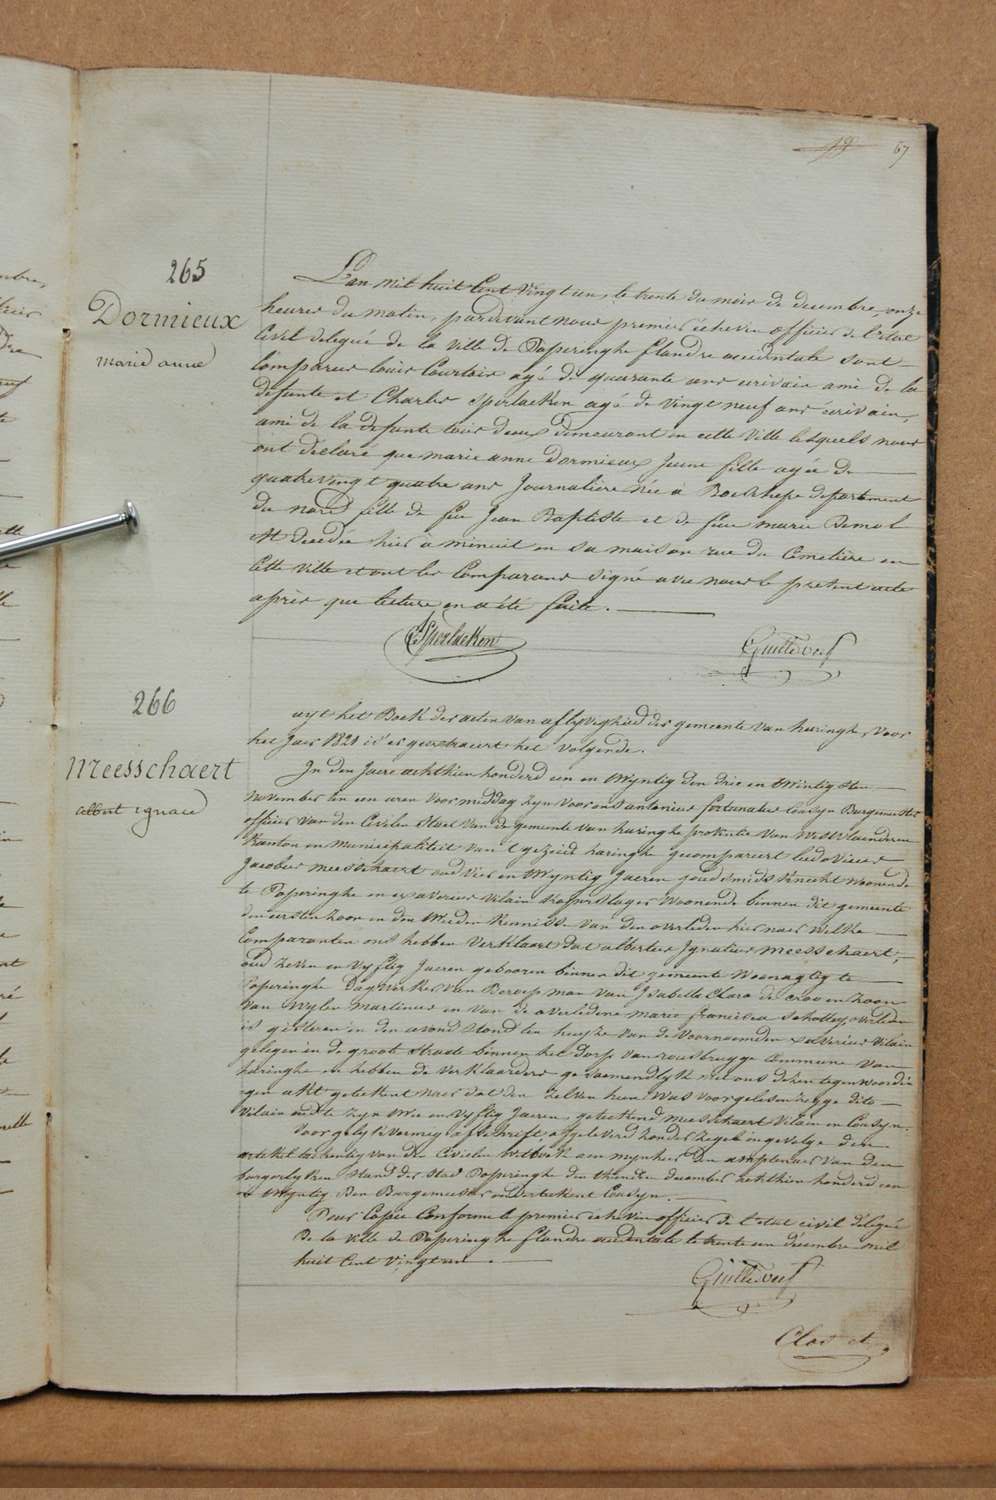 67
265
Dormieux
marie anne
L'an mil huit Cent Vingt un, le trente du mois de decembre, onze
heures du matin, pardevant nous premier échevin officier de l'etat
Civil delegué de la Ville de Poperinghe flandre occidentale sont
Comparus louis Courtois agé de quarante ans ecrivain ami de la
defunte et Charles Sperlaeken agé de vingt neuf ans écrivain,
ami de la defunte tous deux demeurant en cette Ville lesquels nous
ont déclaré que marie anne Dormieux Jeune fille agée de
quatrevingt quatre ans Journalière née à Boeschepe departement
du nord fille de feu Jean Baptiste et de feu marie Demol
est decedée hier à minuit en sa maison rue du Cemetière en
Cette Ville et ont les Comparans signé avec nous le present acte
après que lecture en a été faite.
CSperlaeken
266
Meesschaert
albert ignace
uyt het Boek der acten van aflyvigheid der gemeente van haringhe, voor
het Jaer 1821 is geextraeert het volgende.
In den Jaere achthien honderd een en twyntig den drie en twintigsten
November ten een uren voor middag zyn voor ons antonius fortunatus Cousyn Burgemeester
officier van den Civilen Staet van de gemeente van haringhe provintie van West vlaenderen
Kanton en municipaliteit van 't gezeid haringhe gecompareert ludovicus
Jacobus meesschaert oud vier en twyntig Jaeren goudsmids knecht woonende
te Poperinghe en xsaverius Vilain woonende binnen dit gemeente
den eersten zoon en den Kennisse van den overleden hier naer welke
Comparanten ons hebben verklaert dat albertus Ignatius meesschaert,
oud zeven en vyftig Jaeren gebooren binnen dit gemeente Woenagtig te
Poperinghe Dagwerker van Beroep man van Isabelle Clara de croo en zoon
van wylen martinus en van de overledene marie francisca overleden
is gisteren in den avond stond ten huyse van de voornoemden xsaverius Vilain
gelegen in de groote straete binnen het dorp van rousbrugge Commune van
haringhe en hebben de verklaerders gesaemendlyk met ons dezen tegenwoordi
gen akt geteekent naer dat den zelven hun was voorgelesen
Vilain oud te zyn twee en vyftig Jaeren, geteekend meesschaert Vilain en Cousyn.
Voor gelykvormig afschrift, afgeleverd zonder zegel ingevolge den
artikel van den Civilen Wetboek aen mynheer den amptenaer van den
burgerlyken stand der stad Poperinghe den december achthien honderd een
en twyntig Den Burgemeester onderteekent Cousyn.
Pour Copie Conforme le premier échevin officier de l'etat civil délégué
De la Ville de Poperinghe flandre occidentale le trente un décembre mil
huit Cent Vingt un.
Clos et